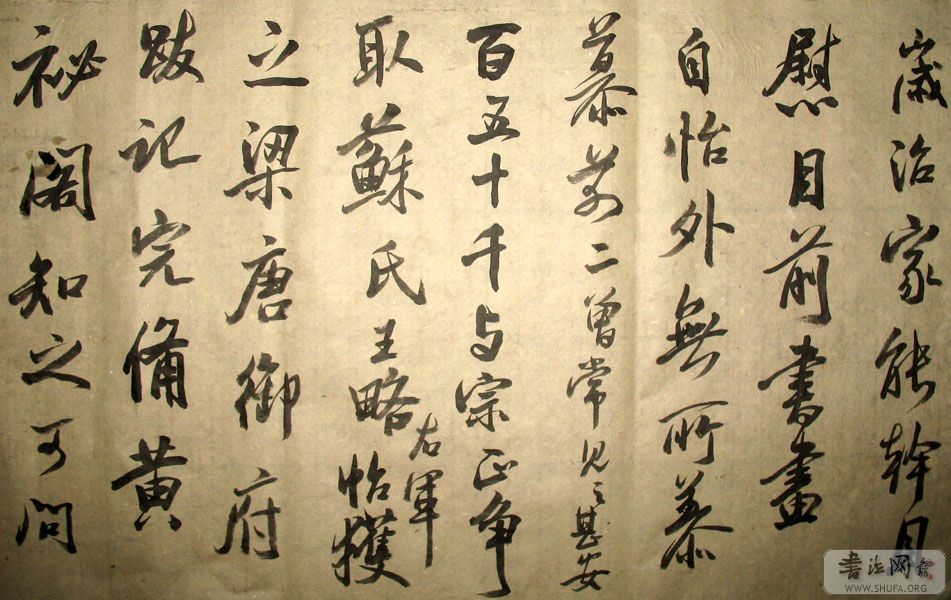 歲治家能幹且
慰目前書畫
自怡外無所慕
慕前二曾常見之甚安
百五十千与宗正争
取蘇氏王略帖獲
右軍
之梁唐御府
跋記完備黃
祕閣知之可問
书法网
WWW.SHUFA.ORG